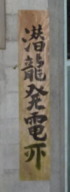 潜龍発電所